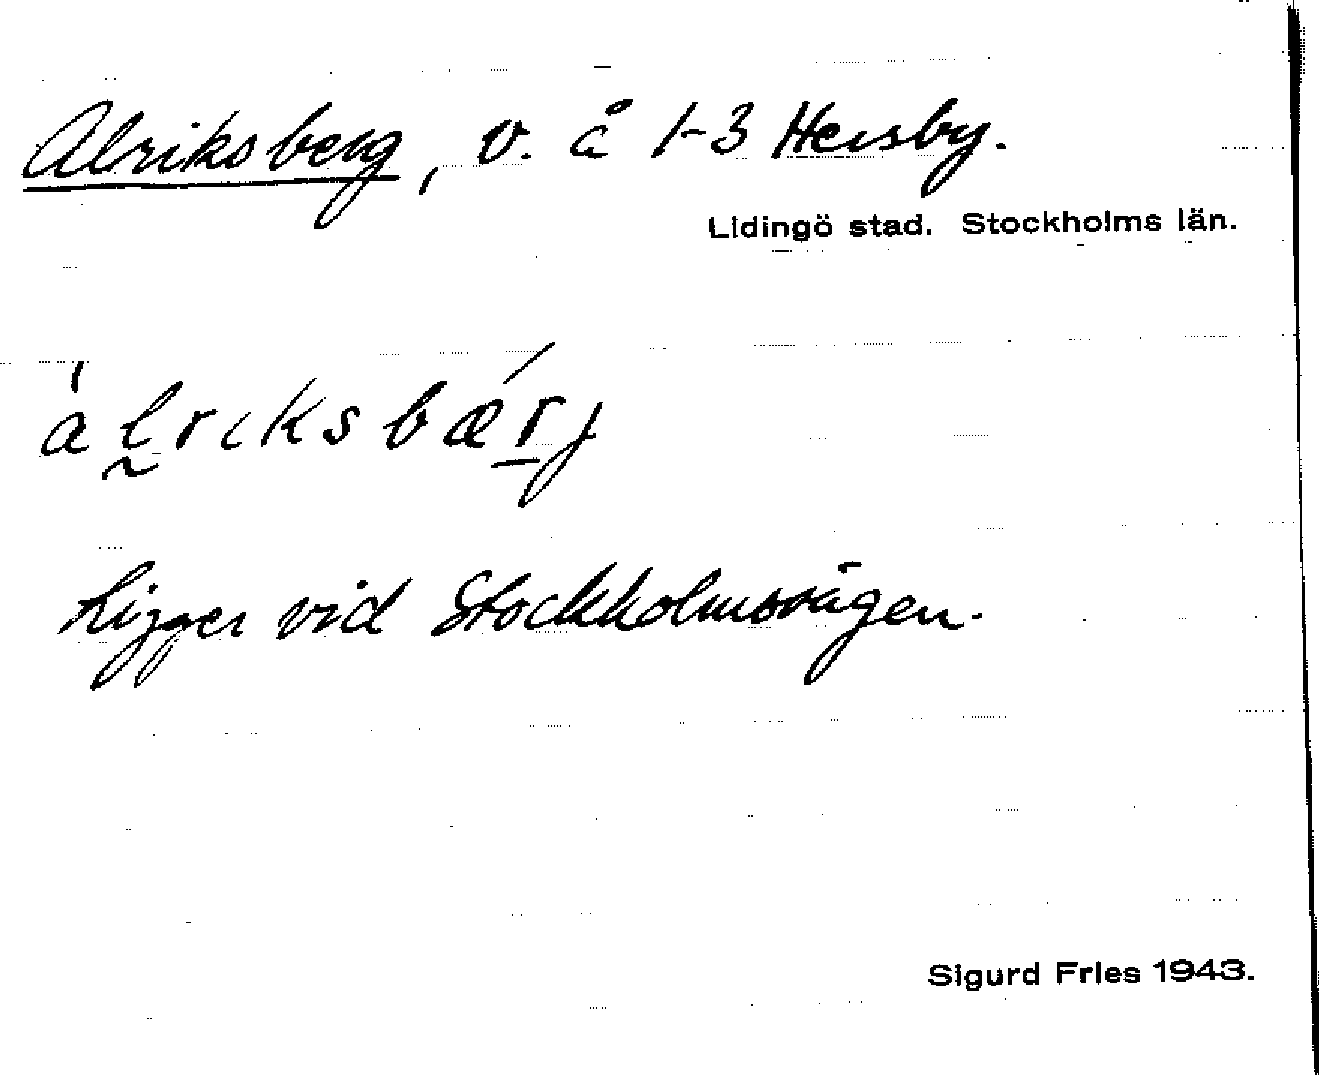 Alriksberg, v. å 1-3 Hersby.
Lidingö stad. Stockholms län.
álriksbærj
Ligger vid Stockholmsvägen.
Sigurd Fries 1943.